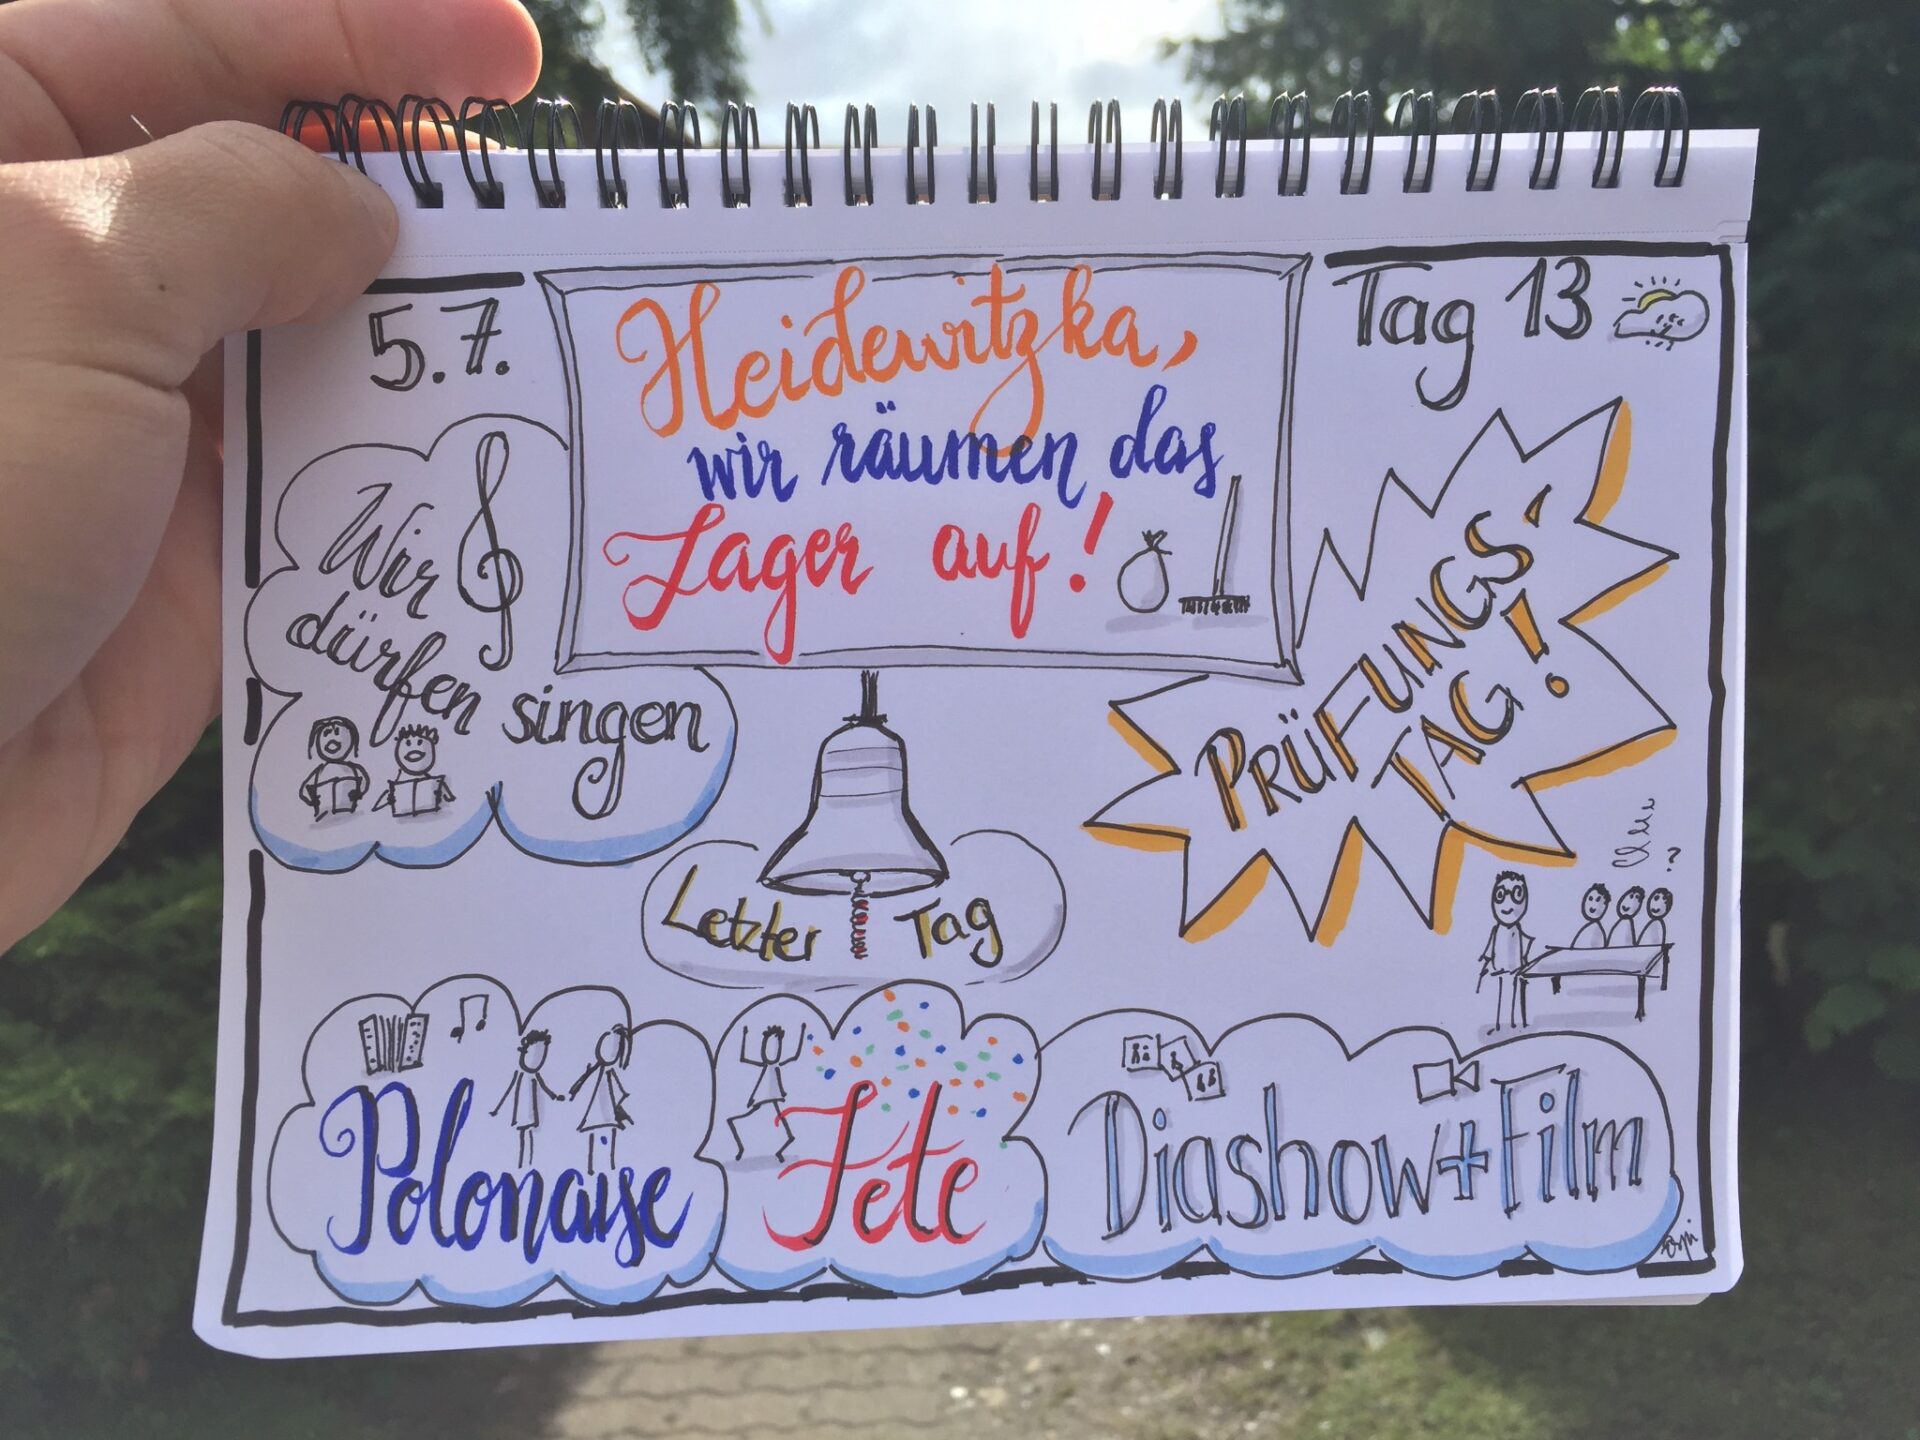 5.7.
Heidewitzka,
wir räumen das
Lager auf!
Tag 13
Wir
dürfen singen
PRÜFUNGS
TAG!
?
Letzter Tag
Polonaise
Fete
Diashow + Film